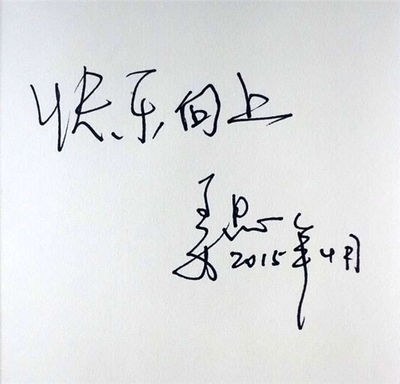 快乐向上
2015年4月